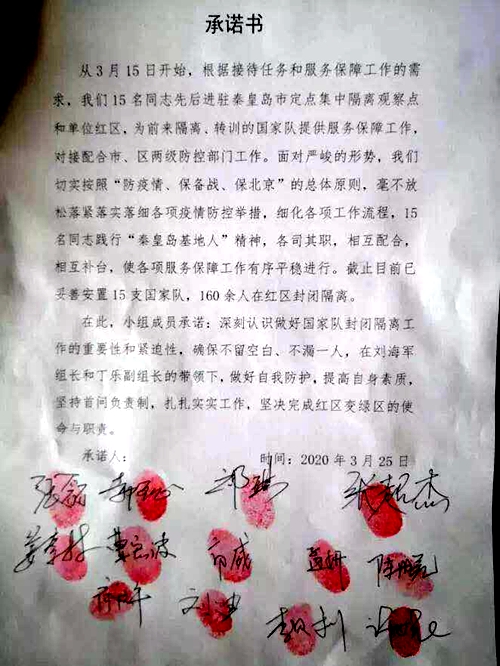 承诺书
从3月15日开始，根据接待任务和服务保障工作的需
求，我们15名同志先后进驻秦皇岛市定点集中隔离观察点
和单位红区，为前来隔离、转训的国家队提供服务保障工作，
对接配合市、区两级防控部门工作。面对严峻的形势，我们
切实按照“防疫情、保备战、保北京”的总体原则，毫不放
松落紧落实落细各项疫情防控举措，细化各项工作流程，15
名同志践行“秦皇岛基地人”精神，各司其职，相互配合，
相互补台，使各项服务保障工作有序平稳进行。截止目前已
妥善安置15支国家队，160余人在红区封闭隔离。
在此，小组成员承诺：深刻认识做好国家队封闭隔离工
作的重要性和紧迫性，确保不留空白、不漏一人，在刘海军
组长和丁乐副组长的带领下，做好自我防护，提高自身素质，
坚持首问负责制，扎扎实实工作，坚决完成红区变绿区的使
命与职责。
承诺人： 时间：2020年3月25日
张超杰